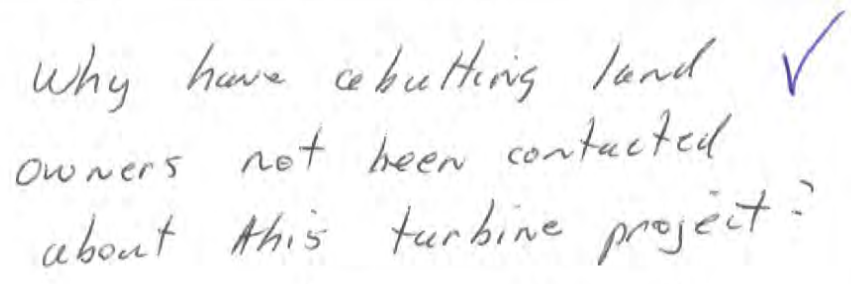 Why have abutting land
owners not been contacted
about this turbine project?